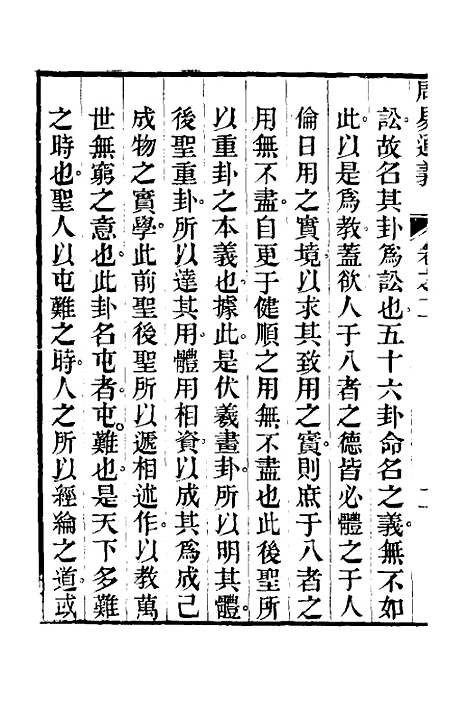 周易通義 卷之二
訟。故名其卦為訟也。五十六卦命名之義。無不如
此。以是為教。蓋欲人于八者之德。皆必體之于人
倫日用之實境。以求其致用之實。則庶于八者之
用無不盡。自更于健順之用無不盡也。此後聖所
以重卦之本義也。據此。是伏羲畫卦。所以明其體。
後聖重卦。所以達其用。體用相資。以成其為成己
成物之實學。此前聖後聖所以遞相述作。以教萬
世無窮之意也。此卦名屯者。屯。難也。是天下多難
之時也。聖人以屯難之時。人之所以經綸之道。或